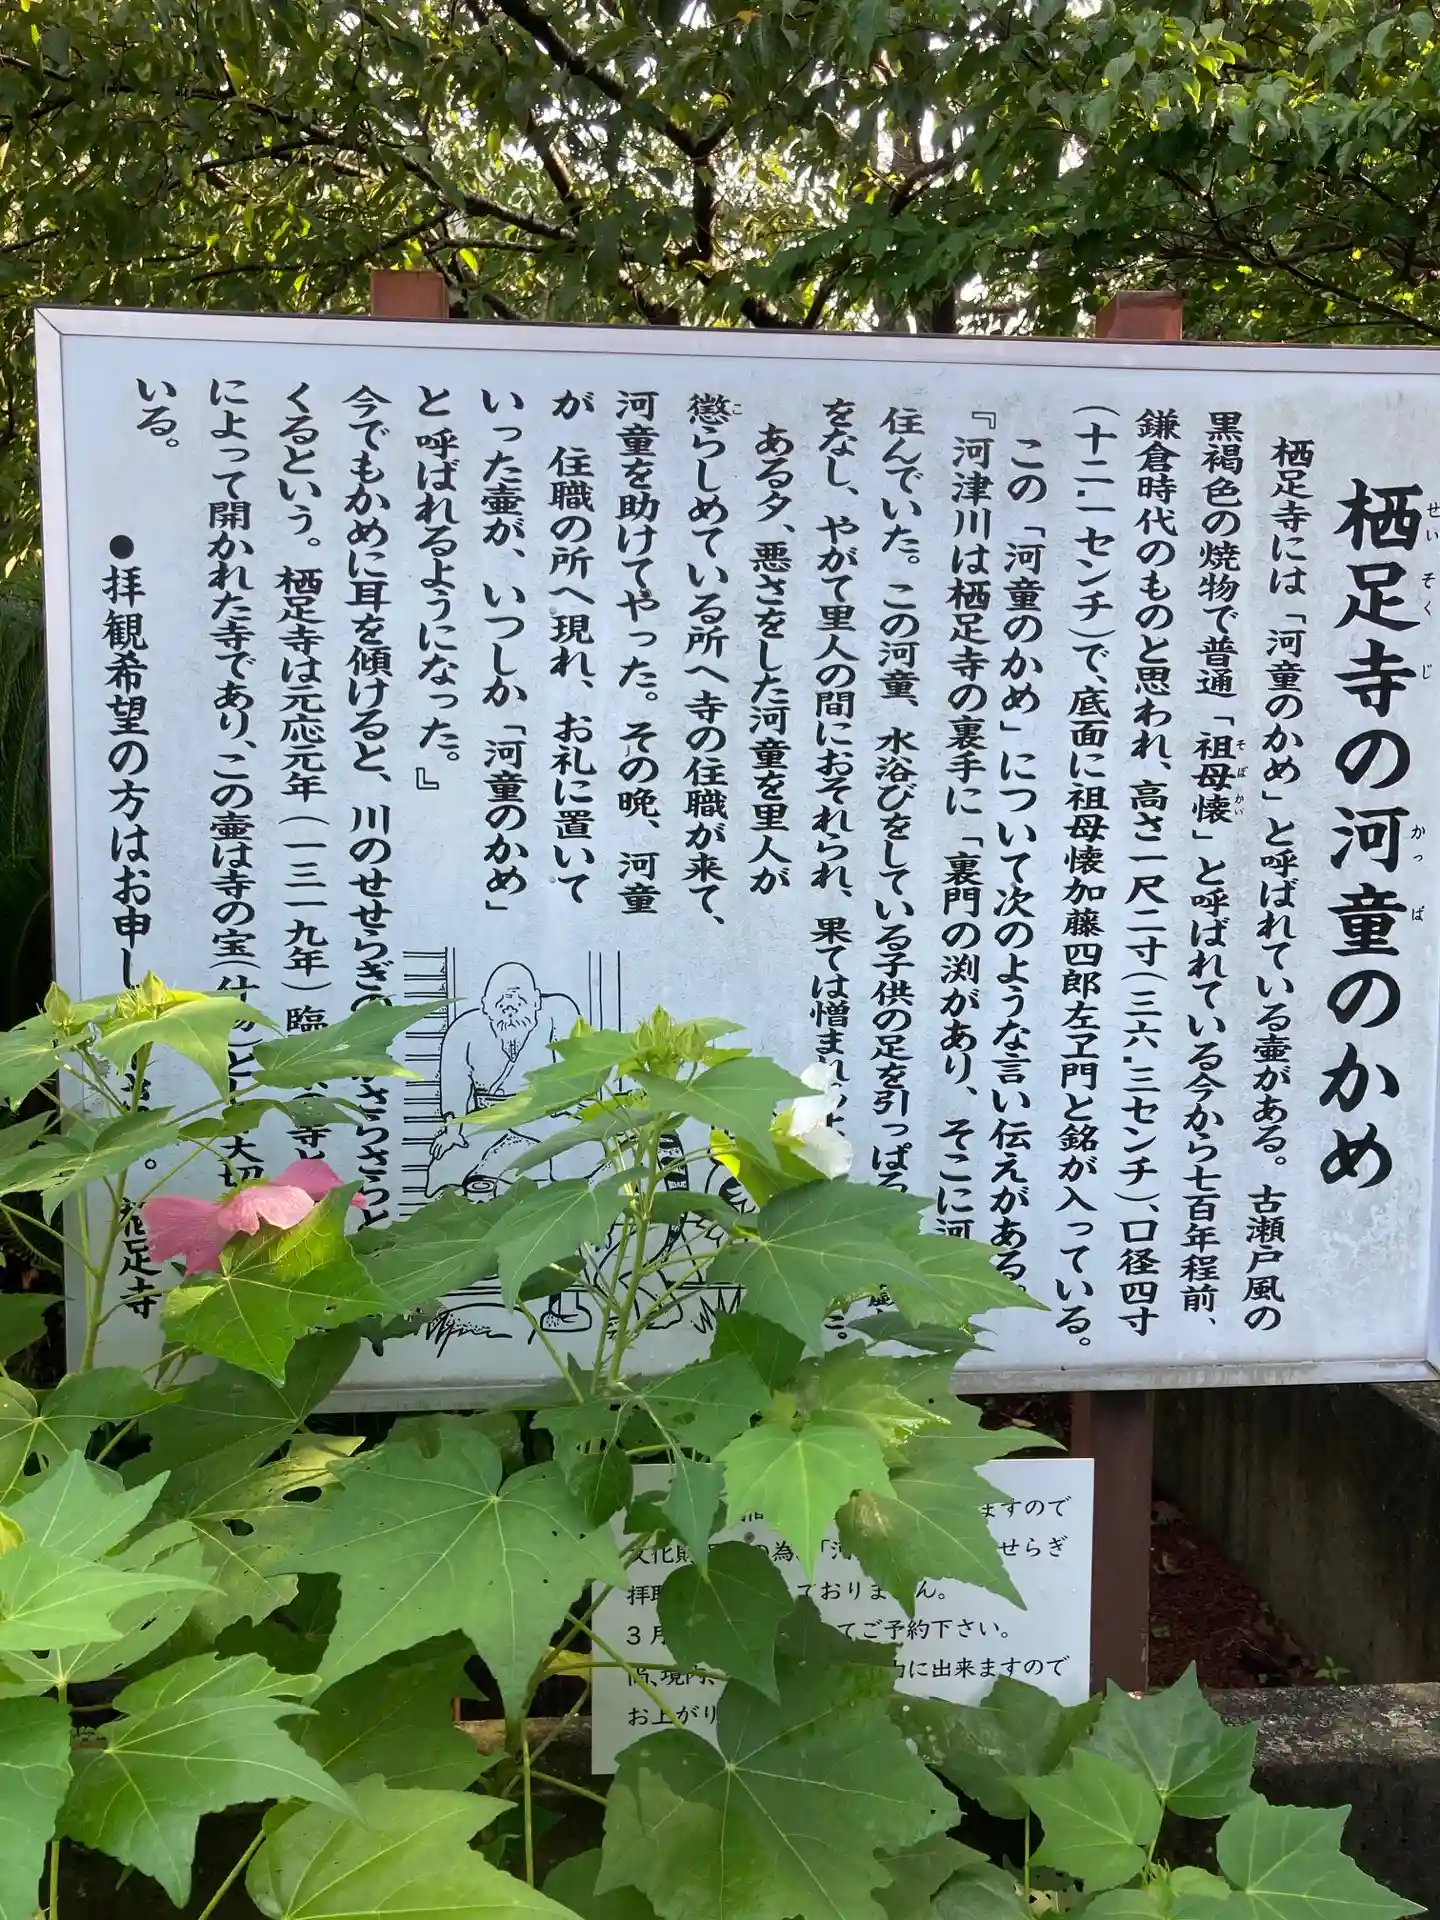 栖足寺の河童のかめ
せいそくじ かっぱ
栖足寺には「河童のかめ」と呼ばれている壷がある。古瀬戸風の
黒褐色の焼物で普通「祖母懐」と呼ばれている今から七百年程前、
そぼかい
鎌倉時代のものと思われ、高さ一尺二寸(三六.三センチ)、口径四寸
(十二.一センチ)で、底面に祖母懐加藤四郎左ヱ門と銘が入っている。
この「河童のかめ」について次のような言い伝えがある。
『河津川は栖足寺の裏手に「裏門の渕があり、そこに河
住んでいた。この河童、水浴びをしている子供の足を引っぱる
をなし、やがて里人の間におそれられ、果ては憎まれ た。
ある夕、悪さをした河童を里人が
懲らしめている所へ寺の住職が来て、
こ
河童を助けてやった。その晩、河童
が 住職の所へ現れ、お礼に置いて
いった壷が、いつしか「河童のかめ」
と呼ばれるようになった。』
今でもかめに耳を傾けると、川のせせらぎの さらさらと
くるという。栖足寺は元応元年(一三一九年)臨 寺と
によって開かれた寺であり、この壷は寺の宝( )と 大切
いる。
●拝観希望の方はお申し 。 足寺
ますので
文化財 の為、「河 せらぎ
拝聴 ておりません。
3月 てご予約下さい。
尚、境内、 に出来ますので
お上がり